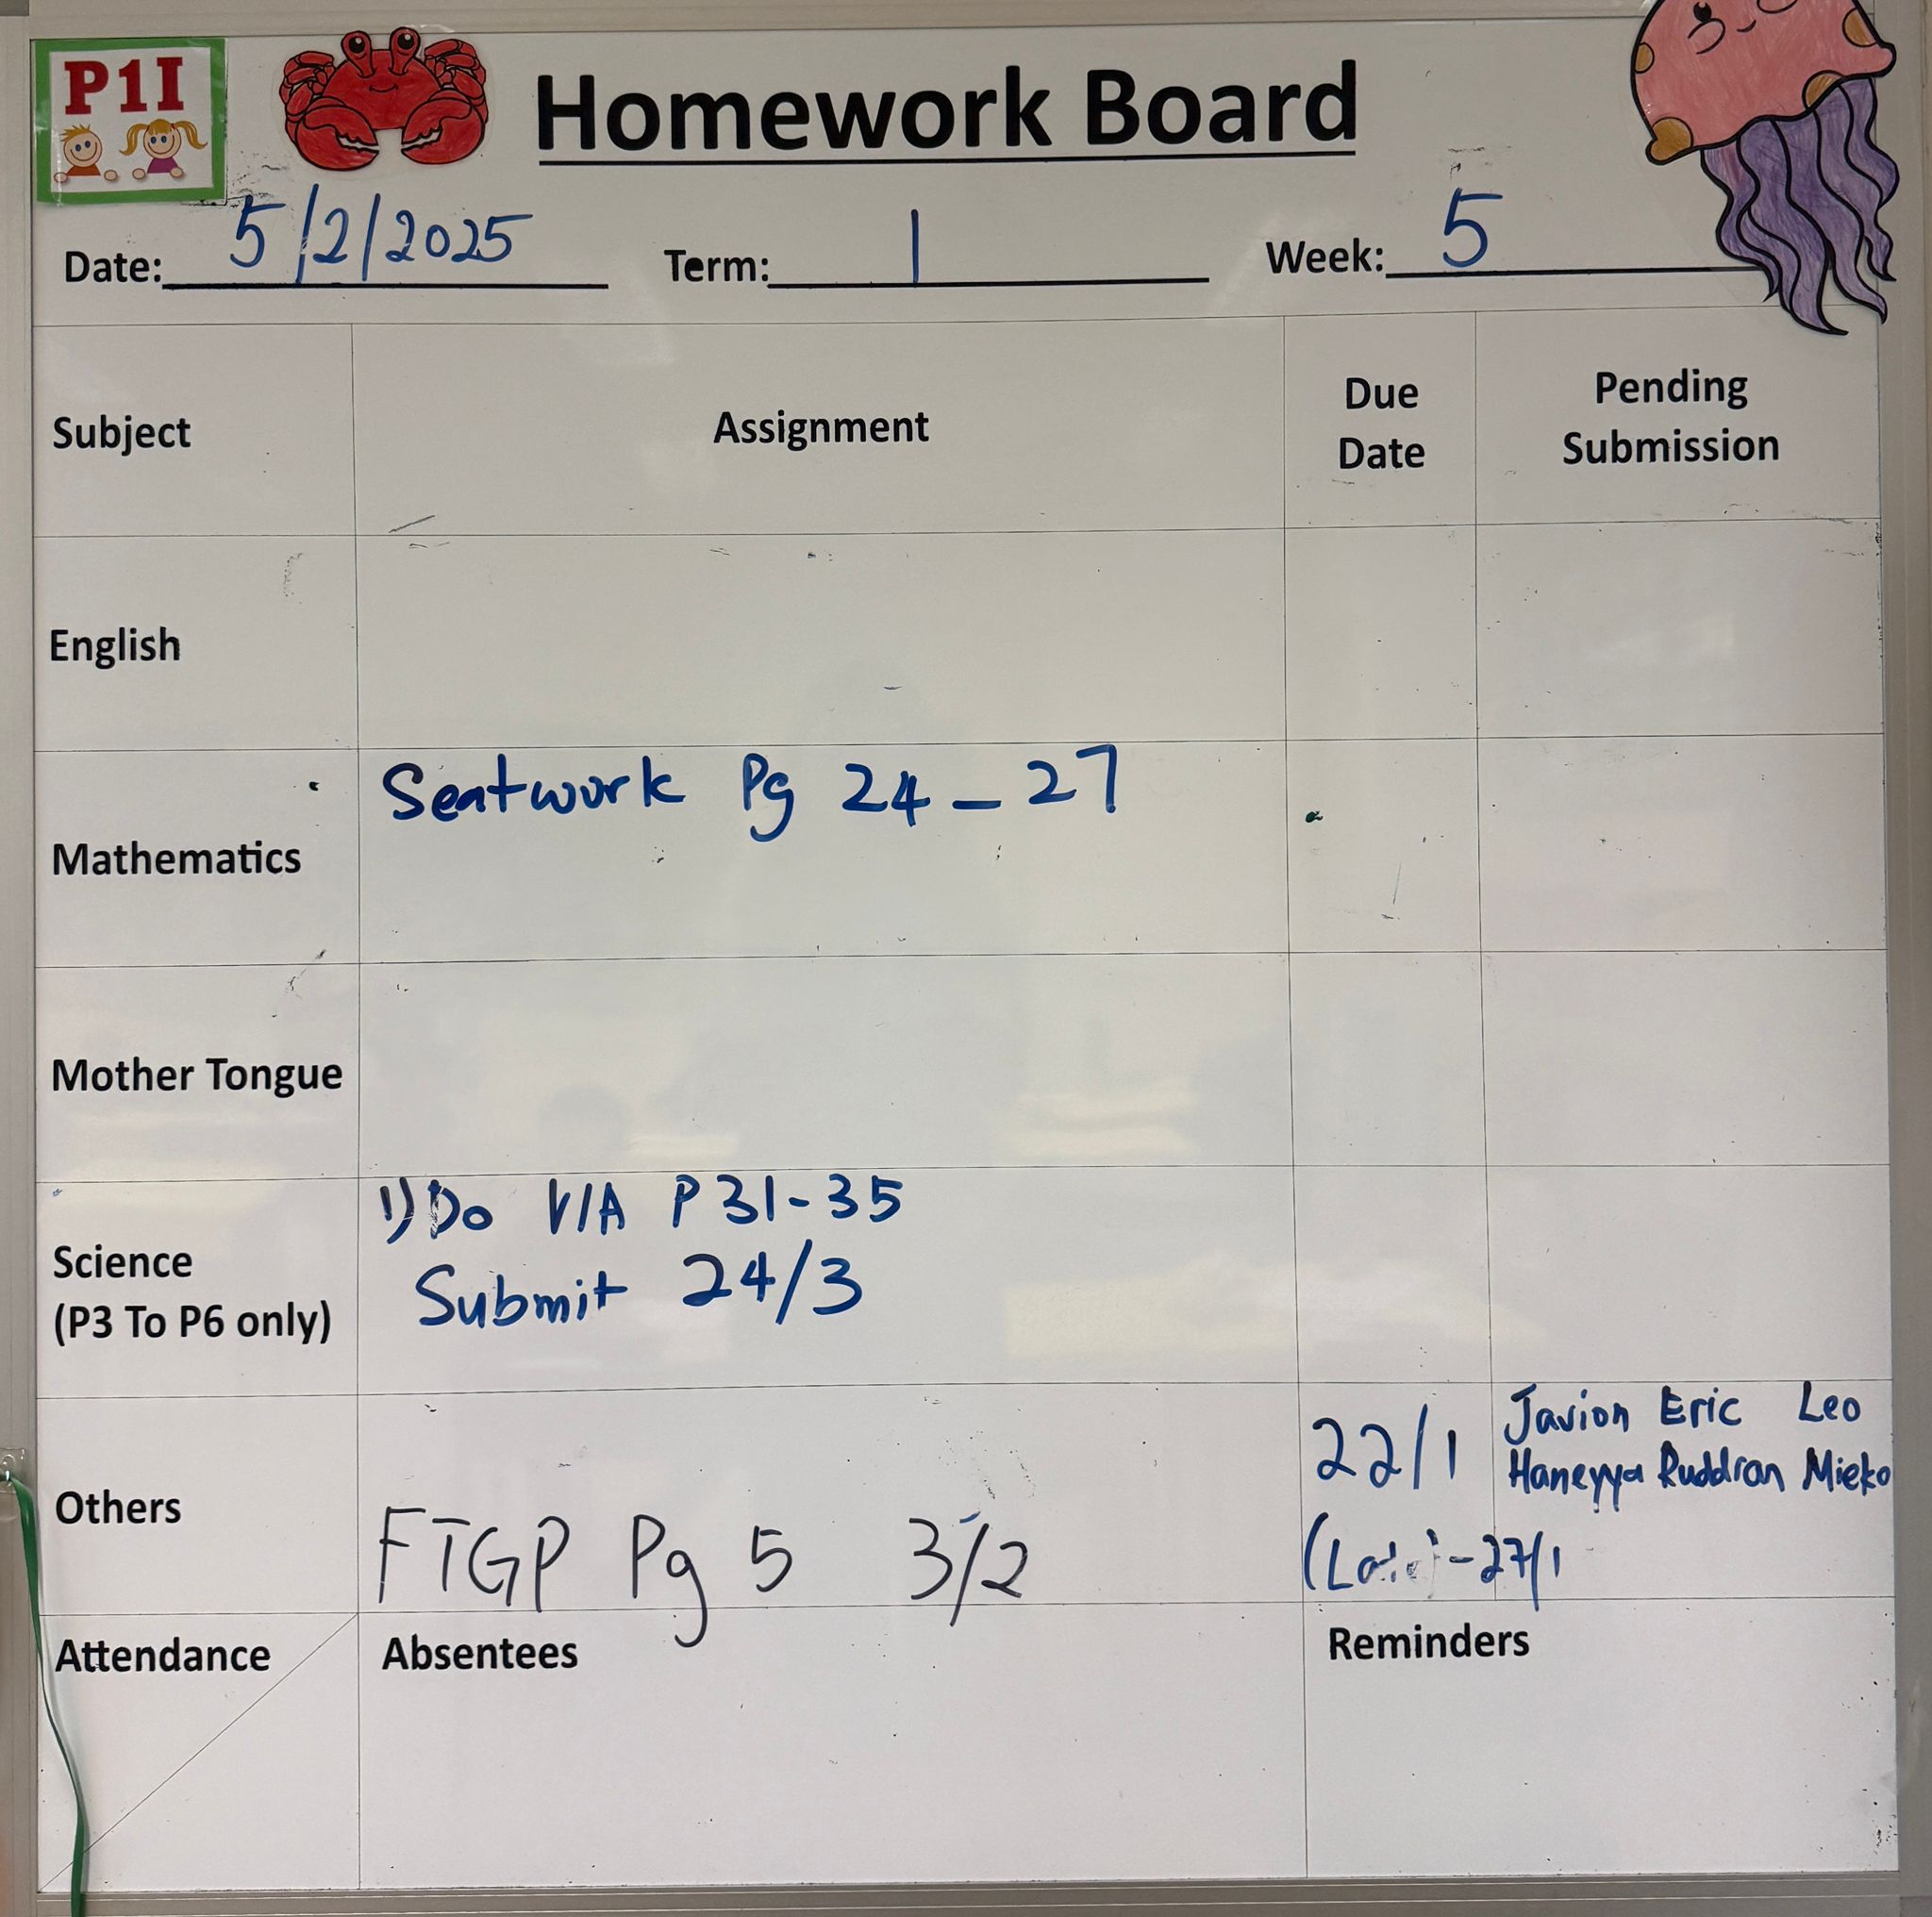 P1I
Homework Board
Date: 5/2/2025 Term: 1 Week: 5
Subject Assignment Due Date Pending Submission
English
Mathematics Seatwork Pg 24 - 27
Mother Tongue
Science
(P3 To P6 only)
1) Do V/A P 31-35
Submit 24/3
Others
FTGP Pg 5 3/2
22/1
Javion Eric Leo
Haneyya Ruddran Mieko
-27/1
Attendance Absentees Reminders